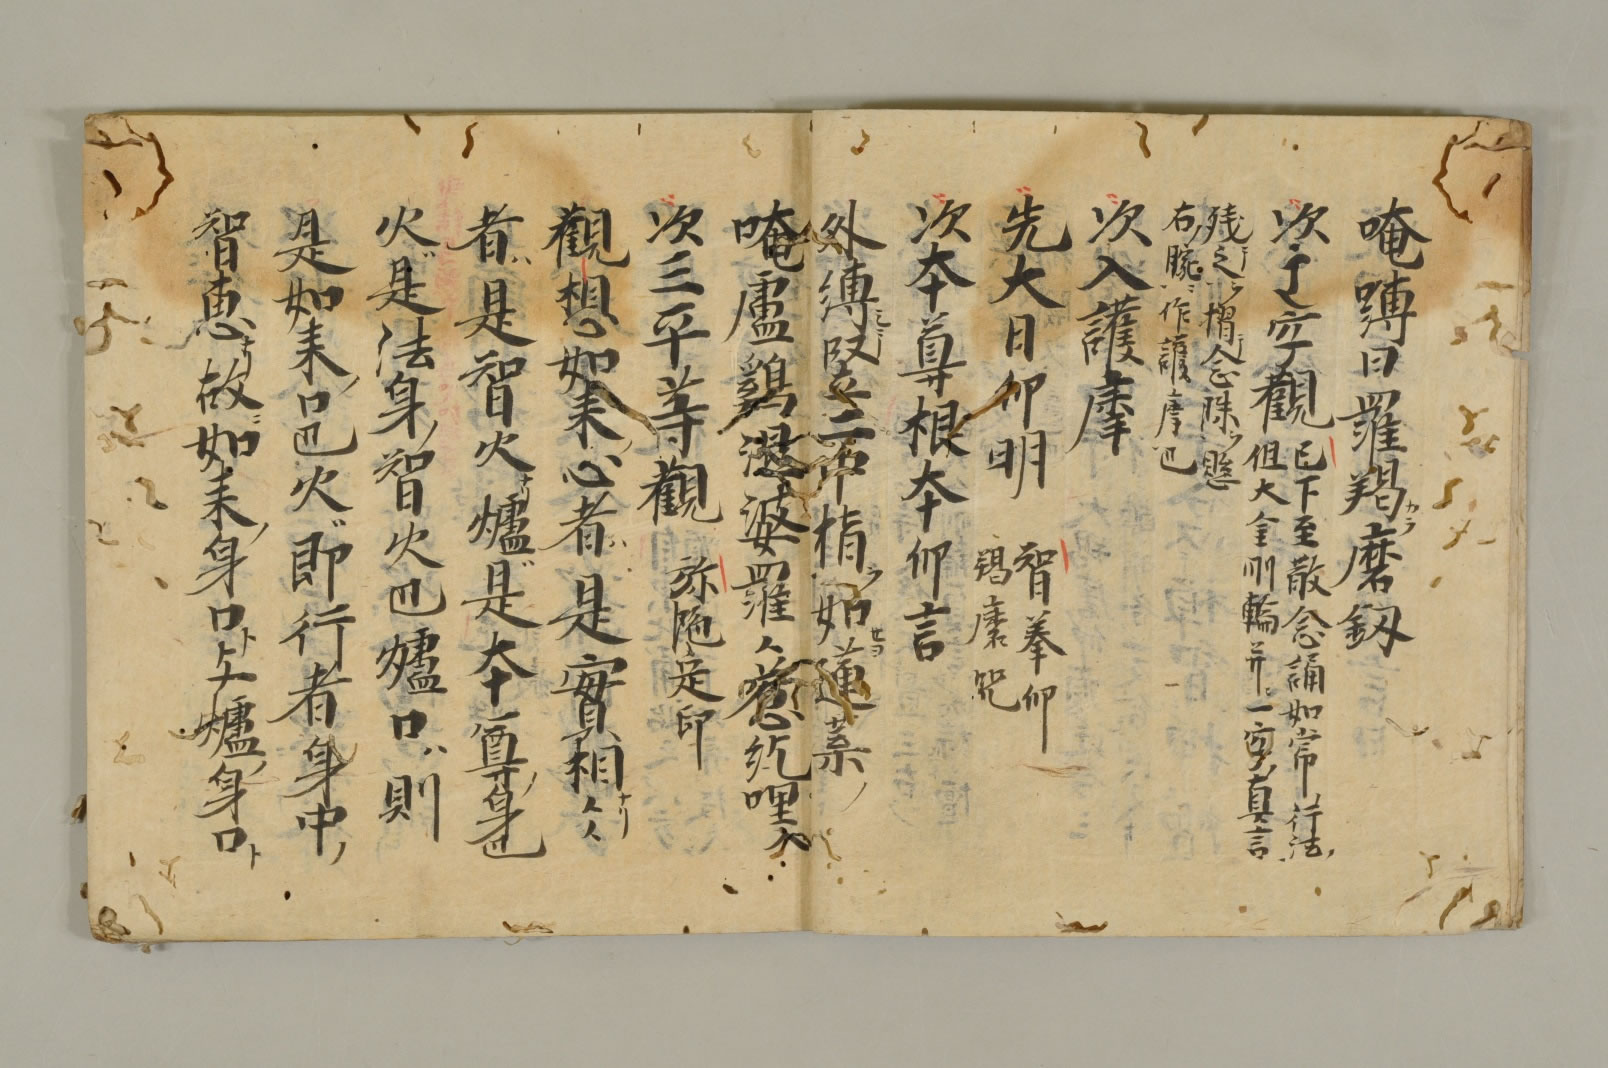 唵嚩日羅羯磨釼
次字観 已下至散念誦如常行法
但大金剛輪并一字真言
残之摺念珠ヲ懸
右腕ニ作護摩也
次入護摩
先大日印明 智拳印
羯磨咒
次本尊根本印言
外縛竪二中指ヲ如蓮葉
唵盧鷄濕婆羅々惹紇哩
次三平等觀 弥陀定印
觀想如来心者ハ是實相ナリ
者ハ是智火ナリ爐ハ是本尊身也
火ハ是法身智火也爐口ハ則
是如来口也火ハ即行者身中
智恵ナリ故ニ如来身口ト与爐身口ト